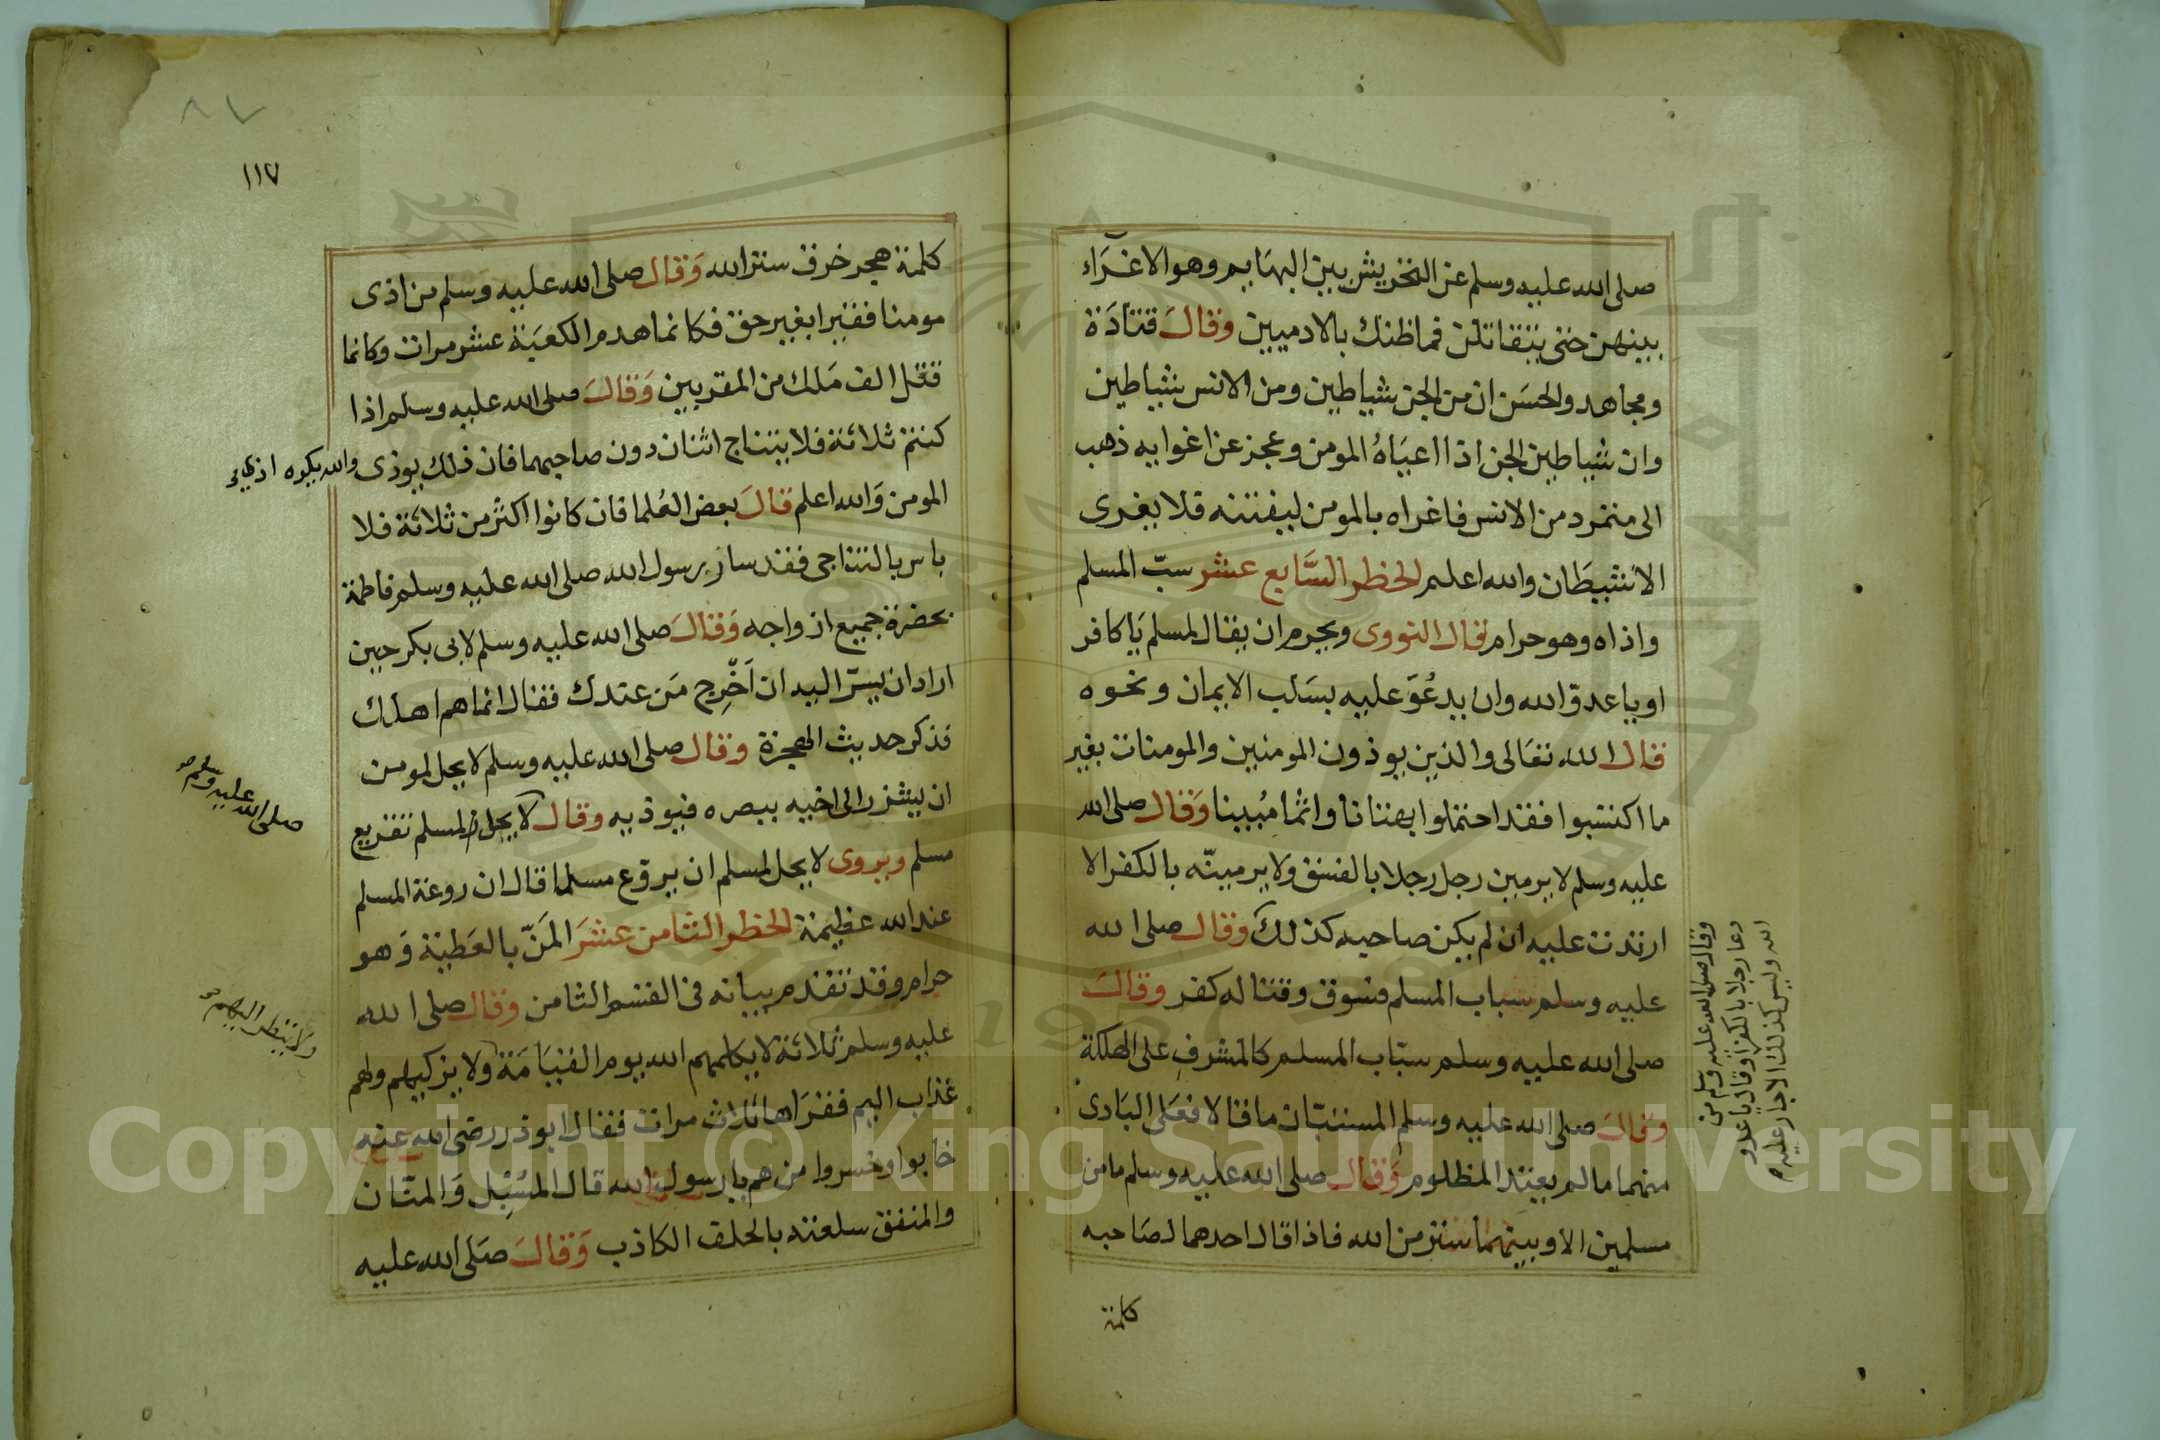 صلى الله عليه وسلم عن التحريش بين البهايم وهو الاغراء
بينهن حتى يتقاتلن فما ظنك بالادميين وقال قتادة
ومجاهد والحسن ان من الجن شياطين ومن الانس شياطين
وان شياطين الجن اذا اعياه المومن وعجز عن اغوايه ذهب
الى متمرد من الانس فاغراه بالمومن ليفتنه فلا يغرى
الا شيطان والله اعلم الحظر السابع عشر سب المسلم
واذاه وهو حرام قال النووى ويحرم ان يقال لمسلم يا كافر
او يا عدو الله وان يدعو عليه بسلب الايمان ونحوه
قال الله تعالى والذين يوذون المومنين والمومنات بغير
ما اكتسبوا فقد احتملوا بهتانا واثما مبينا وقال صلى الله
عليه وسلم لا يرمين رجل رجلا بالفسق ولا يرمينه بالكفر الا
ارتدت عليه ان لم يكن صاحبه كذلك وقال صلى الله
عليه وسلم سباب المسلم فسوق وقتاله كفر وقال
صلى الله عليه وسلم سباب المسلم كالمشرف على الهلكة
وقال صلى الله عليه وسلم المستبان ما قالا فعلى البادى
منهما ما لم يعتد المظلوم وقال صلى الله عليه وسلم ما من
مسلمين الا وبينهما ستر من الله فاذا قال احدهما لصاحبه
كلمة
وقال صلى الله عليه وسلم من
دعا رجلا بالكفر او قال يا عدو
الله وليس كذلك الا حار عليه
٨٧
١١٧
كلمة هجر خرق ستر الله وقال صلى الله عليه وسلم من اذى
مومنا فقيرا بغير حق فكانما هدم الكعبة عشر مرات وكانما
قتل الف ملك من المقربين وقال صلى الله عليه وسلم اذا
كنتم ثلاثة فلا يتناج اثنان دون صاحبهما فان ذلك يوذى والله يكره اذى
المومن والله اعلم قال بعض العلما فان كانوا اكثر من ثلاثة فلا
باس بالتناجى فقد سار رسول الله صلى الله عليه وسلم فاطمة
بحضرة جميع ازواجه وقال صلى الله عليه وسلم لابى بكر حين
اراد ان يسر اليه ان اخرج من عندك فقال انما هم اهلك
فذكر حديث الهجرة وقال صلى الله عليه وسلم لا يحل لمومن
ان يشتر الى اخيه ببصره فيوذيه وقال لا يحل لمسلم تفزيع
مسلم ويروى لا يحل لمسلم ان يروع مسلما قال ان روعة المسلم
عند الله عظيمة الحظر الثامن عشر المن بالعطية وهو
حرام وقد تقدم بيانه فى القسم الثامن وقال صلى الله
عليه وسلم ثلاثة لا يكلمهم الله يوم القيامة ولا يزكيهم ولهم
عذاب اليم فقراها ثلاث مرات فقال ابو ذر رضى الله عنه
خابوا وخسروا من هم يا رسول الله قال المسبل والمنان
والمنفق سلعته بالحلف الكاذب وقال صلى الله عليه
صلى الله عليه وسلم
ولا ينظر اليهم
Copyright © King Saud University
1957